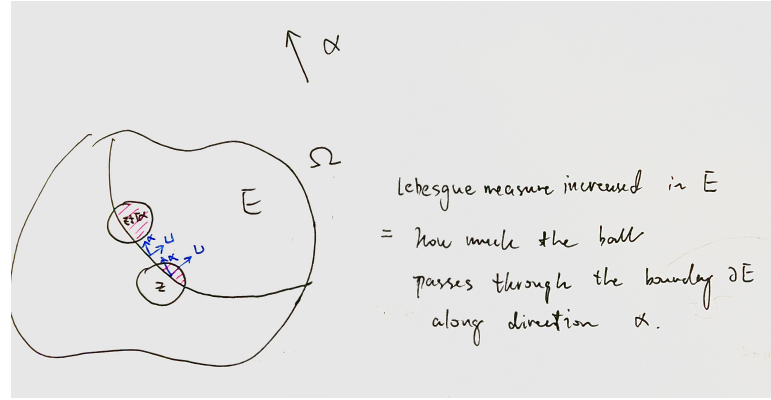 α
Ω
E
Lebesgue measure increased in E
= how much the ball
passes through the boundary ∂E
along direction α.
z+tα
α U
α U
z